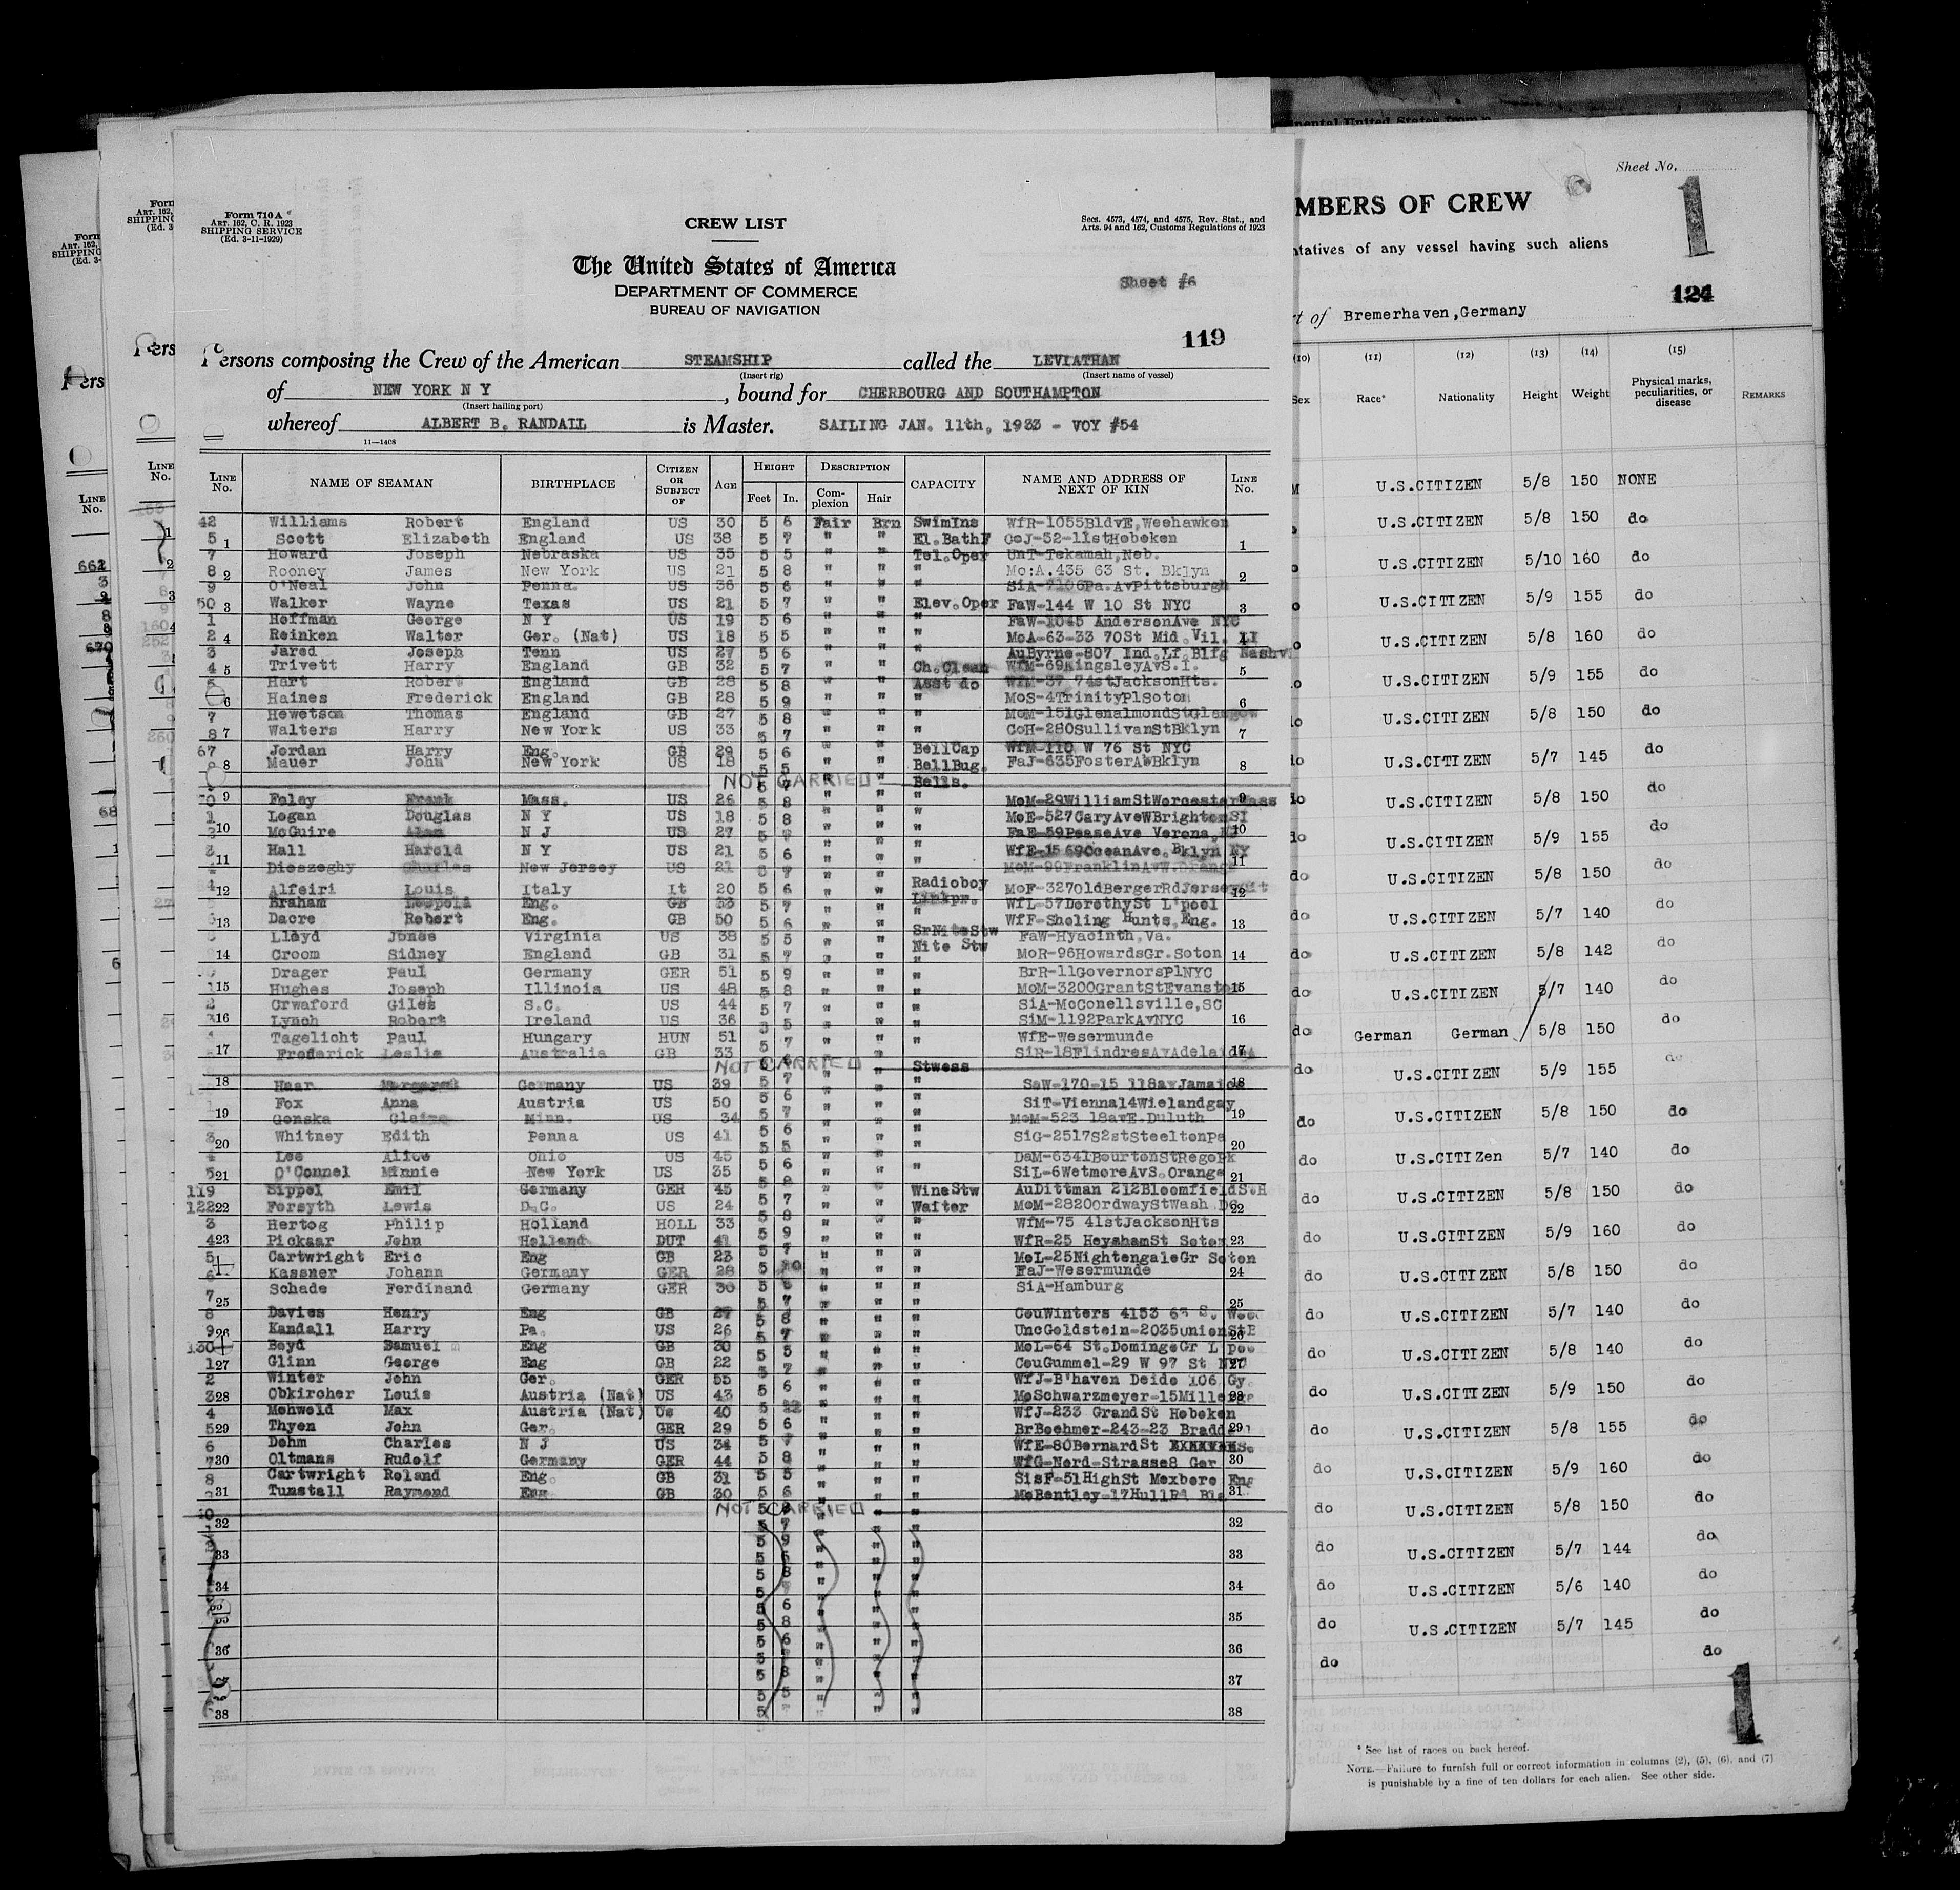 Form 710 A
ART. 162, C. R. 1923
SHIPPING SERVICE
(Ed. 3-11-1929)
CREW LIST
Secs. 4573, 4574, and 4575, Rev. Stat., and
Arts. 94 and 162, Customs Regulations of 1923
The United States of America
DEPARTMENT OF COMMERCE
BUREAU OF NAVIGATION
Sheet #6
119
Persons composing the Crew of the American STEAMSHIP called the LEVIATHAN
(Insert rig) (Insert name of vessel)
of NEW YORK N Y , bound for CHERBOURG AND SOUTHAMPTON
(Insert hailing port)
whereof ALBERT B. RANDALL is Master. SAILING JAN. 11th, 1933 - VOY #54
11—1408
LINE No. NAME OF SEAMAN BIRTHPLACE CITIZEN OR SUBJECT OF AGE HEIGHT Feet In. DESCRIPTION Complexion Hair CAPACITY NAME AND ADDRESS OF NEXT OF KIN LINE No.
42 Williams Robert England US 30 5 6 Fair Brn SwimIns WfR-1055BldvE,Weehawken
5 1 Scott Elizabeth England US 38 5 7 " " El.BathF CoJ-52-11stHoboken 1
7 Howard Joseph Nebraska US 35 5 5 " " Tel.Oper UnT-Tekamah,Neb.
8 2 Rooney James New York US 21 5 8 " " " Mo:A.435 63 St. Bklyn 2
9 O'Neal John Penna. US 36 5 6 " " " SiA-7106Pa.AvPittsburgh
50 3 Walker Wayne Texas US 21 5 7 " " Elev.Oper FaW-144 W 10 St NYC 3
1 Hoffman George N Y US 19 5 6 " " " FaW-1045 AndersonAve NYC
2 4 Reinken Walter Ger. (Nat) US 18 5 5 " " " MoA-63-33 70St Mid.Vil. LI
3 Jared Joseph Tenn US 27 5 6 " " " AuByrne-807 Ind.Lf.Blfg Nashv.
4 5 Trivett Harry England GB 32 5 7 " " Ch.Clean WfM-69KingsleyAvS.I. 5
5 Hart Robert England GB 28 5 8 " " Asst do WfM-37 74stJacksonHts.
6 Haines Frederick England GB 28 5 9 " " " MoS-4TrinityPlSoton 6
7 Hewetson Thomas England GB 27 5 8 " " " MoM-151GlenalmondStGlasgow
8 7 Walters Harry New York US 33 5 7 " " " CoH-280SullivanStBklyn 7
67 Jordan Harry Eng. GB 29 5 6 " " BellCap WfM-110 W 76 St NYC
8 8 Mauer John New York US 18 5 5 " " BellBug. FaJ-635FosterAvBklyn 8
NOT CARRIED Bells.
9 Foley Frank Mass. US 26 5 8 " " " MoM-29WilliamStWorcesterMass 9
1 Logan Douglas N Y US 18 5 8 " " " MoE-527CaryAveWBrightonSI
10 McGuire Alan N J US 27 5 " " " FaE-59PeaseAve Verona,NJ 10
3 Hall Harold N Y US 21 5 6 " " " WfE-1569OceanAve.Bklyn NY
11 Dieszeghy Charles New Jersey US 21 " " " MoM-99FranklinAvW.Orange 11
12 Alfeiri Louis Italy It 20 5 6 " " Radioboy MoF-327OldBergerRdJerseycit 12
Braham Leopold Eng. GB 33 5 7 " " Linkpr. WfL-57DorothySt L'pool
13 Dacre Robert Eng. GB 50 5 6 " " " WfF-Sholing Hants,Eng. 13
Lloyd Jones Virginia US 38 5 5 " " SrNiteStw FaW-Hyacinth,Va.
14 Croom Sidney England GB 31 5 7 " " Nite Stw MoR-96HowardsGr.Soton 14
Drager Paul Germany GER 51 5 9 " " " BrR-11GovernorsPlNYC
15 Hughes Joseph Illinois US 48 5 8 " " " MoM-3200GrantStEvanston 15
2 Crwaford Giles S.C. US 44 5 7 " " " SiA-McConellsville,SC
3 16 Lynch Robert Ireland US 36 5 5 " " " SiM-1192ParkAvNYC 16
Tagelicht Paul Hungary HUN 51 5 7 " " " WfE-Wesermunde
17 Frederick Leslie Australia GB 33 SiR-18FlindresAvAdelaide 17
NOT CARRIED Stwess
18 Haar Margaret Germany US 39 5 7 " " " SoW-170-15 118avJamaica 18
Fox Anna Austria US 50 5 6 " " " SiT-Vienna14Wielandgay
19 Gonska Claire Minn. US 34 5 7 " " " MoM-523 18avE.Duluth 19
3 20 Whitney Edith Penna US 41 5 6 " " " SiG-2517S2stSteeltonPa 20
4 Lee Alice Ohio US 45 5 5 " " " DaM-6341BourtonStRegoPk
5 21 O'Connel Minnie New York US 35 5 6 " " " SiL-6WetmoreAvS.Orange 21
119 Sippel Emil Germany GER 45 5 8 " " WineStw AuDittman 212BloomfieldStH
122 22 Forsyth Lewis D.C. US 24 5 7 " " Waiter MoM-2820OrdwayStWash DC 22
3 Hertog Philip Holland HOLL 33 5 8 " " " WfM-75 41stJacksonHts
4 23 Picksar John Holland DUT 41 5 9 " " " WfR-25 HeyshamSt Soton 23
5 Cartwright Eric Eng GB 23 5 7 " " " MoL-25NightengaleGr Soton
6 Kassner Johann Germany GER 28 5 10 " " " FaJ-Wesermunde 24
7 25 Schade Ferdinand Germany GER 30 5 6 " " " SiA-Hamburg 25
8 Davies Henry Eng GB 27 5 7 " " " CouWinters 4153 63 S.
9 26 Kandall Harry Pa. US 26 5 8 " " " UncGoldstein-2035UnionStB 26
130 Boyd Samuel Eng GB 30 5 7 " " " MoL-64 St.DomingoGr L'poo
1 27 Glinn George Eng GB 22 5 5 " " " CouGummel-29 W 97 St NYC 27
2 Winter John Ger. GER 55 5 7 " " " WfJ-B'haven Deide 106 Gy.
3 28 Obkircher Louis Austria (Nat) US 43 5 6 " " " MoSchwarzmeyer-15Miller 28
4 Mehwold Max Austria (Nat) Us 40 5 " " " WfJ-233 GrandSt Hoboken
5 29 Thyen John Ger. GER 29 5 6 " " " BrBoehmer-243-23 Bradd 29
6 Dohm Charles N J US 34 5 7 " " " WfE-80BernardSt
7 30 Oltmans Rudolf Germany GER 44 5 8 " " " WfG-Nord-Strasse8 Ger 30
8 Cartwright Roland Eng. GB 31 5 5 " " " SisF-51HighSt Mexboro Eng
9 31 Tunstall Raymond Eng GB 30 5 6 " " " MoBentley-17HullRd 31
NOT CARRIED
32 32
33 33
34 34
35 35
36 36
37
38 38
Sheet No.
1
MBERS OF CREW
ntatives of any vessel having such aliens
124
rt of Bremerhaven,Germany
(10) (11) (12) (13) (14) (15)
Sex Race* Nationality Height Weight Physical marks, peculiarities, or disease REMARKS
M U.S.CITIZEN 5/8 150 NONE
U.S.CITIZEN 5/8 150 do
U.S.CITIZEN 5/10 160 do
U.S.CITIZEN 5/9 155 do
U.S.CITIZEN 5/8 160 do
U.S.CITIZEN 5/9 155 do
U.S.CITIZEN 5/8 150 do
do U.S.CITIZEN 5/7 145 do
do U.S.CITIZEN 5/8 150 do
do U.S.CITIZEN 5/9 155 do
do U.S.CITIZEN 5/8 150 do
do U.S.CITIZEN 5/7 140 do
do U.S.CITIZEN 5/8 142 do
do U.S.CITIZEN 5/7 140 do
do German German 5/8 150 do
do U.S.CITIZEN 5/9 155 do
do U.S.CITIZEN 5/8 150 do
do U.S.CITIZen 5/7 140 do
do U.S.CITIZEN 5/8 150 do
do U.S.CITIZEN 5/9 160 do
do U.S.CITIZEN 5/8 150 do
do U.S.CITIZEN 5/7 140 do
do U.S.CITIZEN 5/8 140 do
do U.S.CITIZEN 5/9 150 do
do U.S.CITIZEN 5/8 155 do
do U.S.CITIZEN 5/9 160 do
do U.S.CITIZEN 5/8 150 do
do U.S.CITIZEN 5/7 144 do
do U.S.CITIZEN 5/6 140 do
do U.S.CITIZEN 5/7 145 do
do do
1
* See list of races on back hereof.
NOTE.—Failure to furnish full or correct information in columns (2), (5), (6), and (7)
is punishable by a fine of ten dollars for each alien. See other side.